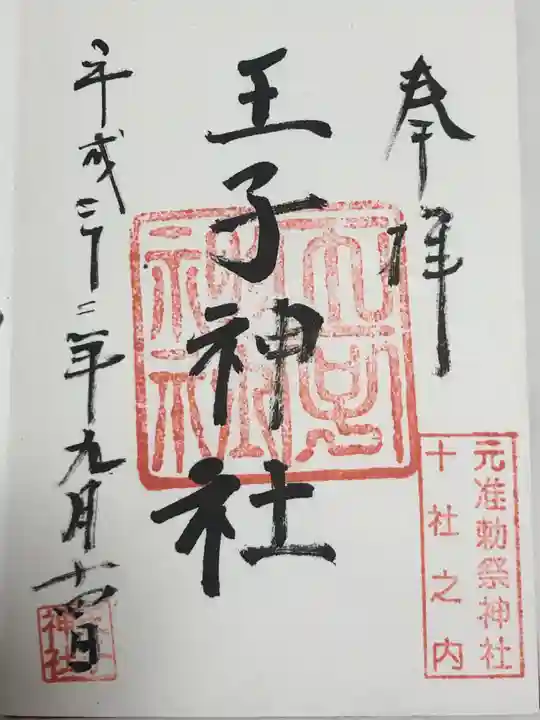 奉拝
元准勅祭神社
十社之内
王子神社
平成三十二年九月十四日
神社